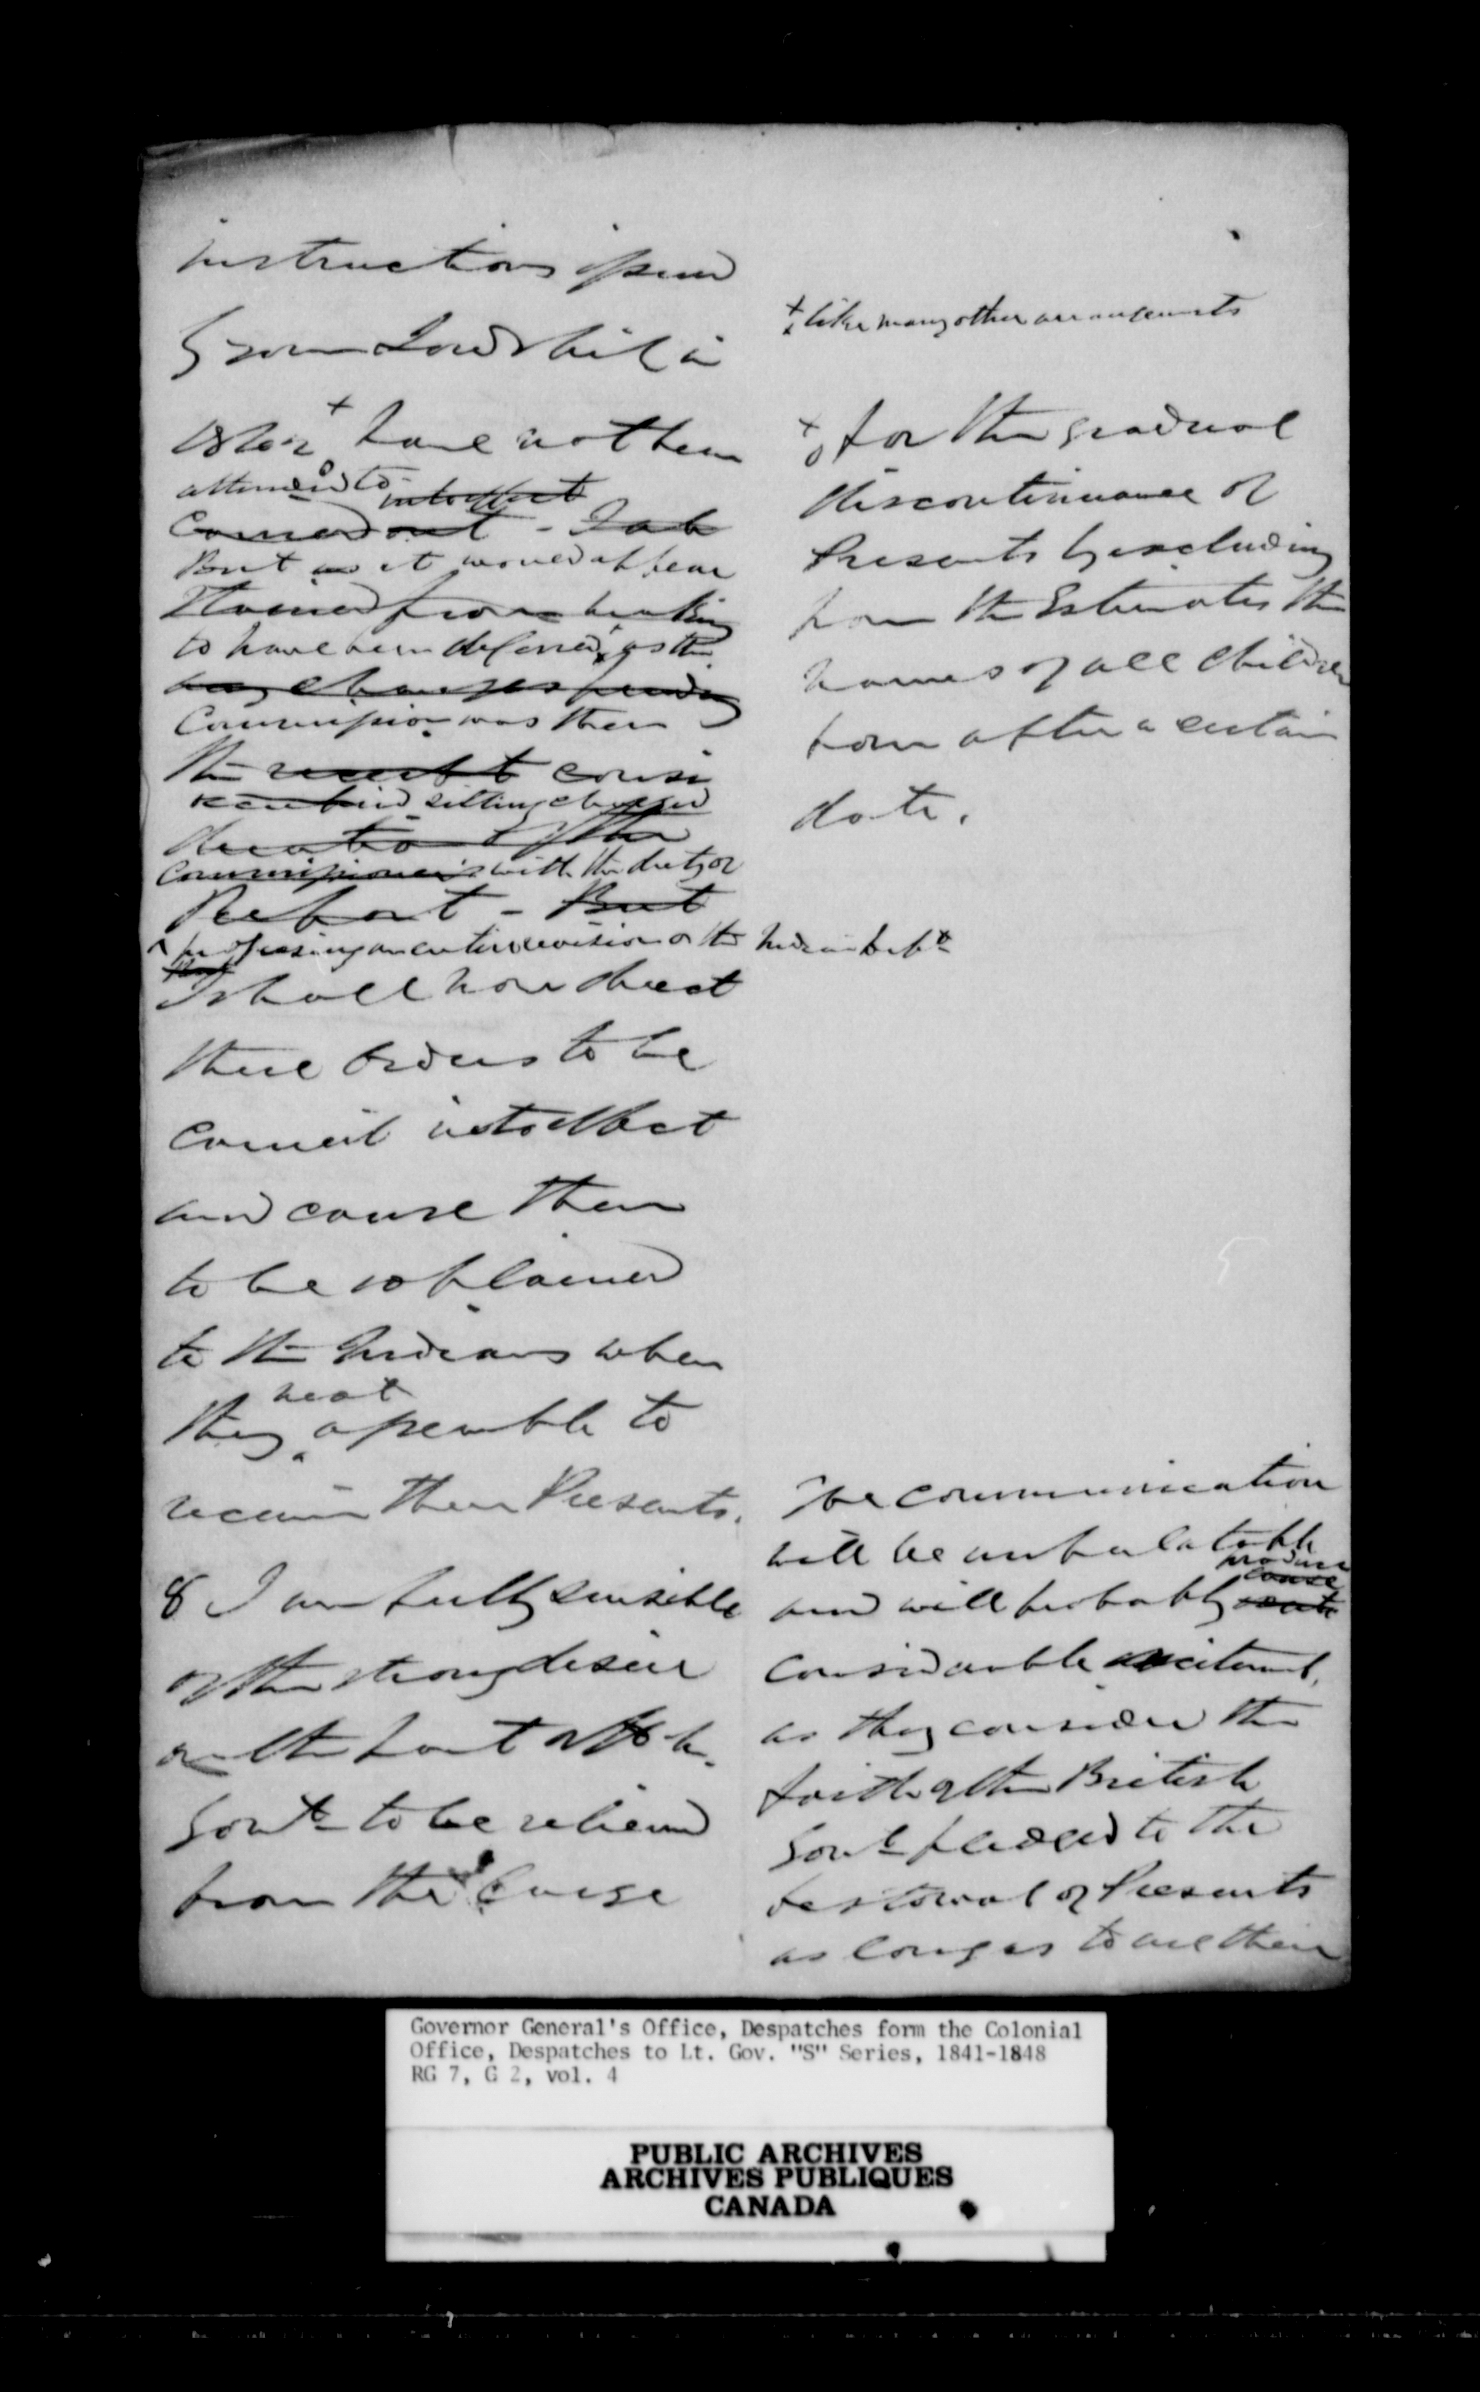 instructions issued
from Lordship in
have not been
attended to
into effect
Carried out -
But as it would appear
from
to have been deferred, as the
any changes pending
Commission was then
the result
sitting charged
of the
Commissioners with the duty of
Report - But
proposing an entire revision of the Indian Dept
I shall now direct
these Orders to be
carried into effect
and cause them
to be explained
to the Indians when
next
they assemble to
receive their Presents.
8 I am fully sensible
of the strong desire
on the part of the
Govt to be relieved
from the Charge
+ like many other arrangements
+ for the gradual
discontinuance of
Presents by excluding
from the Estimates the
names of all children
born after a certain
date.
The communication
will be unpalatable
produce
cause
and will probably
considerable excitement,
as they consider the
faith of the British
Govt pledged to the
bestowal of Presents
as long as
Governor General's Office, Despatches form the Colonial
Office, Despatches to Lt. Gov. "S" Series, 1841-1848
RG 7, G 2, vol. 4
PUBLIC ARCHIVES
ARCHIVES PUBLIQUES
CANADA